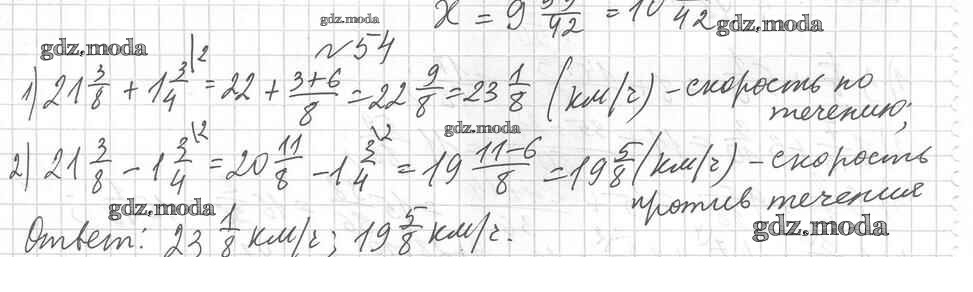 x = 9 42 = 10 42
gdz.moda
gdz.moda
gdz.moda
№54
1) 21 3/8 + 1 3/4 |2 = 22 + 3+6/8 = 22 9/8 = 23 1/8 (км/ч) – скорость по
течению;
gdz.moda
2) 21 3/8 – 1 3/4 \2 = 20 11/8 – 1 3/4 \2 = 19 11–6/8 = 19 5/8 (км/ч) – скорость
против течения
gdz.moda
gdz.moda
Ответ: 23 1/8 км/ч; 19 5/8 км/ч.